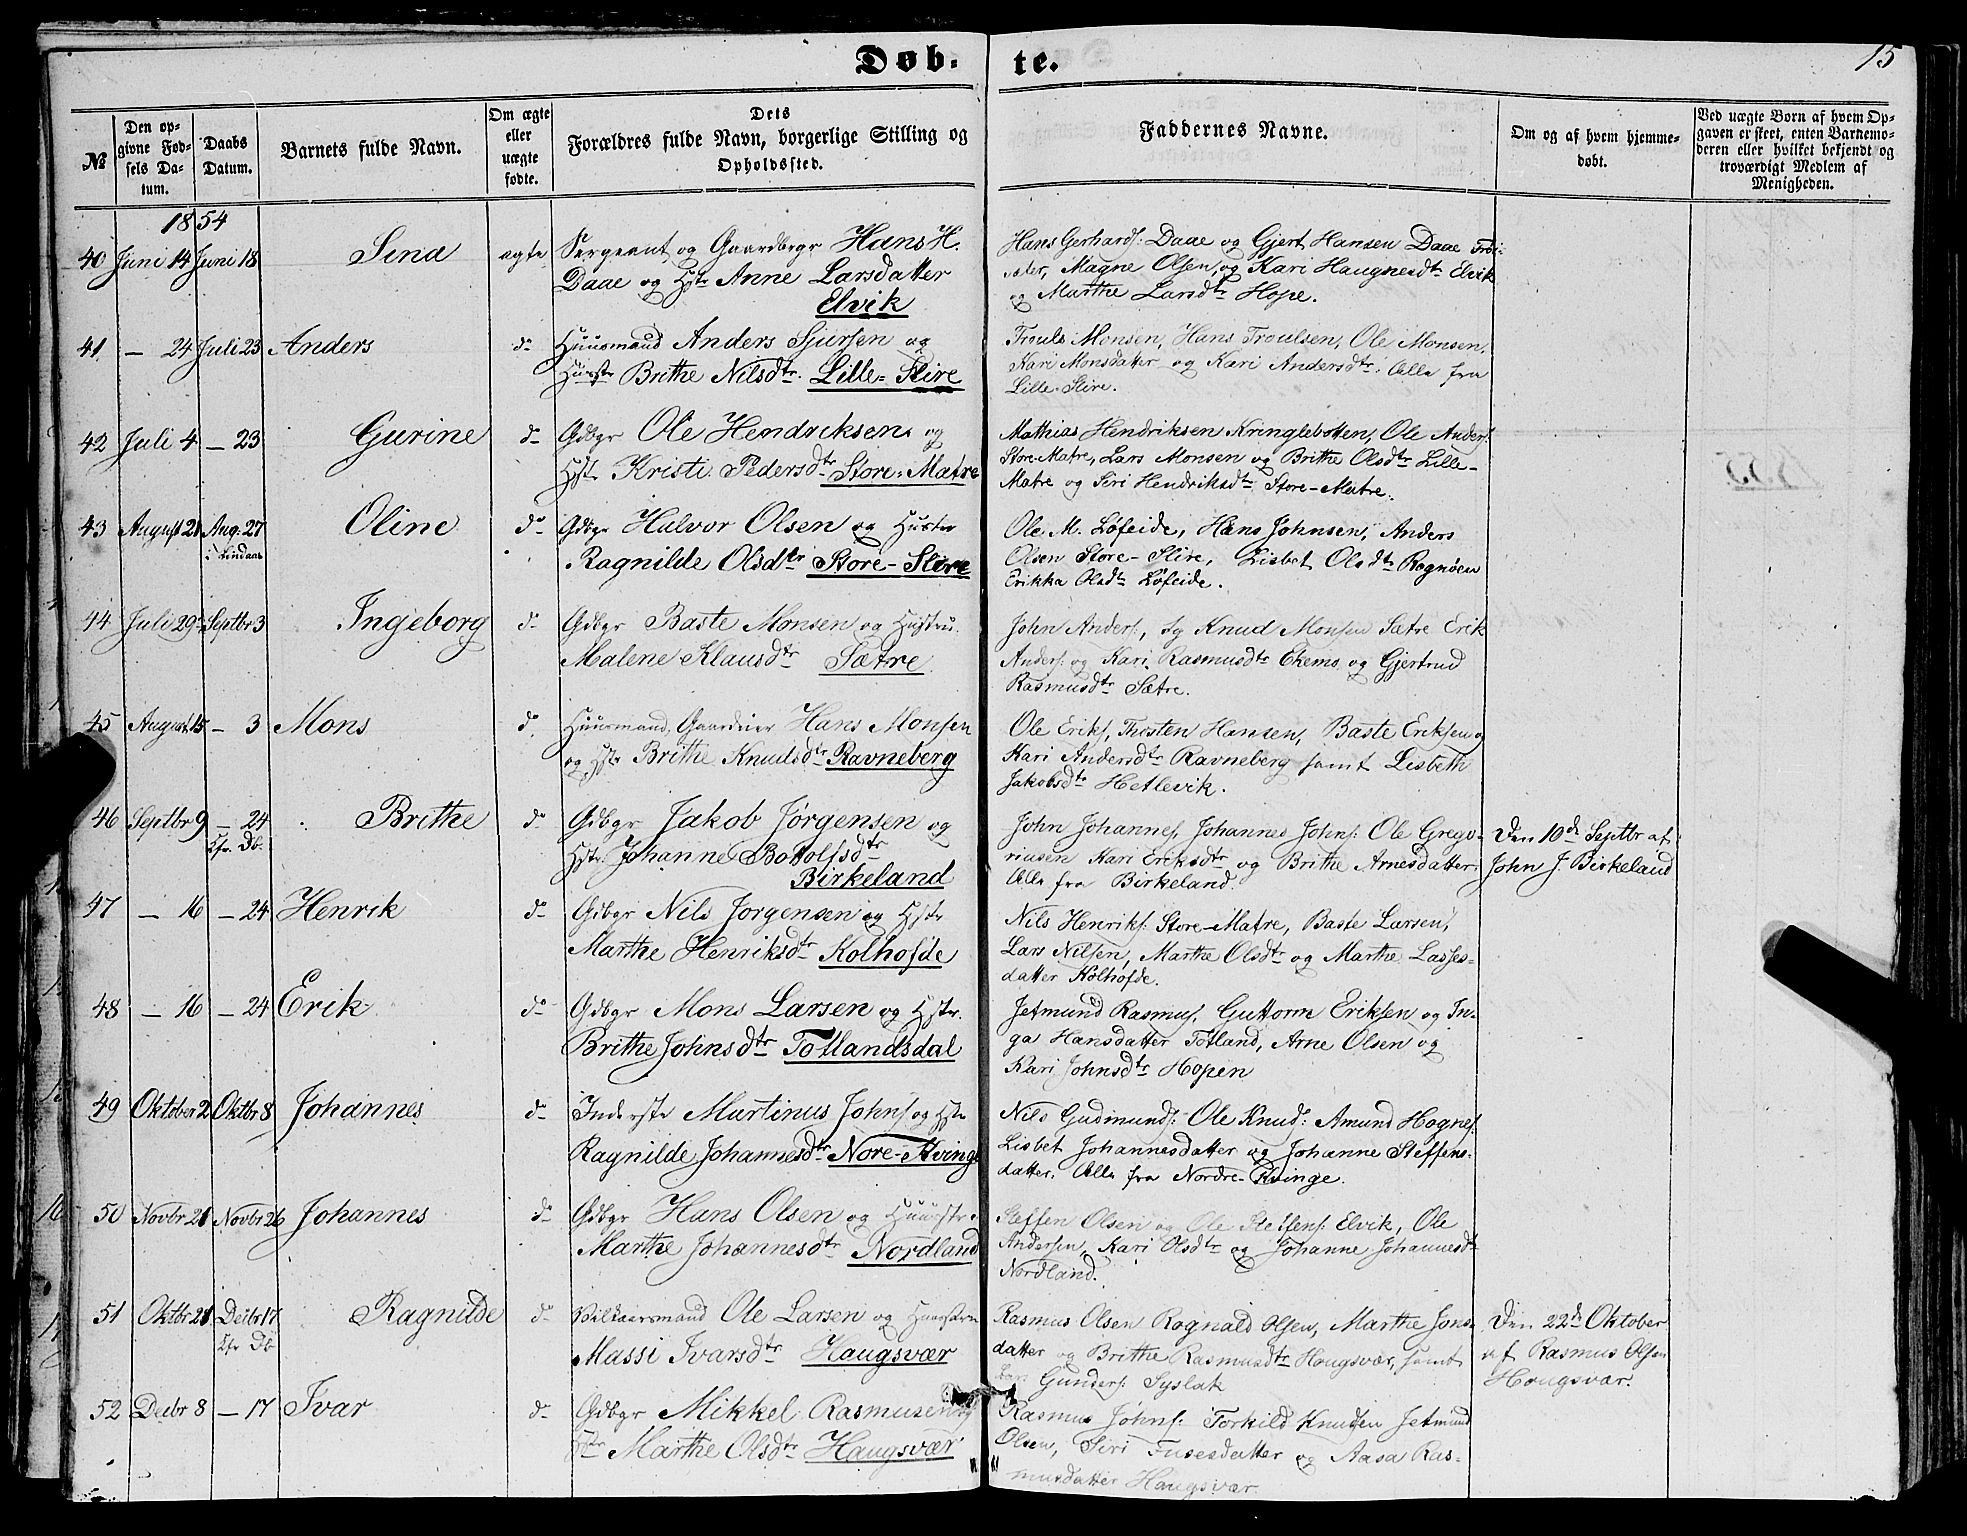 Døb-te.
15
№
Den opgivne Fødsels Datum.
Daabs Datum.
Barnets fulde Navn.
Om ægte eller uægte fødte.
Dets Forældres fulde Navn, borgerlige Stilling og Opholdssted.
Faddernes Navne.
Om og af hvem hjemmedøbt.
Ved uægte Børn af hvem Opgaven er skeet, enten Barnemoderen eller hvilket bekjendt og troværdigt Medlem af Menigheden.
1854
40 Juni 14 Juni 18 Sina ægte Sergeant og Gaardbrgr Hans H.
Daae og Hstr Anne Larsdatter
Elvik
Hans Gerhards: Daae og Gjert Hansen Daae
Magne Olsen, og Kari Haugnesdtr Elvik
og Marthe Larsdtr Hope.
41 — 24 Juli 23 Anders do Huusmand Anders Sjursen og
Hustr Brithe Nilsdtr. Lille-Slire
Trouls Monsen, Hans Troulsen, Ole Monsen,
Kari Monsdatter og Kari Andersdtr. Alle fra
Lille-Slire.
42 Juli 4 — 23 Gurine do Gdbgr Ole Hendriksen og
Hstr Kristi Pedersdtr Store-Matre
Mathias Hendriksen Kringlebotten, Ole Anders:
Store-Matre, Lars Monsen og Brithe Olsdtr Lille-
Matre og Siri Hendriksdtr Store-Matre.
43 August 21 Aug: 27 Oline do Gdbgr Halvor Olsen og Hustr
i Lindaas
Ragnilde Olsdtr Store-Slire
Ole M. Løfeide, Hans Johnsen, Anders
Olsen Store-Slire, Lisbet Olsdtr Rognøen
Erikka Olsdtr Løfeide.
44 Juli 29 Septbr 3 Ingeborg do Gdbgr Baste Monsen og Hustru
Malene Klausdtr Sætre
John Anders:, og Knud Monsen Sætre Erik
Anders: og Kari Rasmusdtr Ekemo og Gjertrud
Rasmusdtr Sætre.
45 August 15 — 3 Mons do Huusmand, Hans Monsen
og Hstr Brithe Knudsdtr Ravneberg
Ole Eriks, Thosten Hansen, Baste Eriksen og
Kari Andersdtr Ravneberg samt Lisbeth
Jakobsdtr Hetlevik.
46 Septbr 9 — 24 Brithe do Gdbgr Jakob Jørgensen og
Hstr. Johanne Botolfsdtr
Birkeland
John Johannes, Johannes Johns: Ole Grego-
riusen Kari Eriksdtr og Brithe Arnesdatter.
Alle fra Birkeland.
Den 10de Septbr af
John J. Birkeland
47 — 16 — 24 Henrik do Gdbgr Nils Jorgensen og Hstr
Marthe Henriksdtr Kolhofde
Nils Henriks: Store-Matre, Baste Larsen,
Lars Nilsen, Marthe Olsdtr og Marthe Lasses-
datter Kolhofde.
48 — 16 — 24 Erik do Gdbgr Mons Larsen og Hstr.
Brithe Johnsdtr Totlandsdal
Jetmund Rasmus, Guttorm Eriksen og In-
ga Hansdatter Totland, Arne Olsen og
Kari Johnsdtr Hopen
49 Oktober 2 Oktbr 8 Johannes do Inderste Martinus Johns og Hstr
Ragnilde Johannesdtr Nore-Kvinge
Nils Gudmunds: Ole Knuds: Amund Hognes:
Lisbet Johannesdatter og Johanne Steffens-
datter. Alle fra Nordre-Kvinge.
50 Novbr 21 Novbr 26 Johannes do Gdbgr Hans Olsen og Huustr.
Marthe Johannesdtr Nordland
Steffen Olsen og Ole Steffens: Elvik, Ole
Andersen, Kari Olsdtr og Johanne Johannesdtr
Nordland.
51 Oktbr 21 Decbr 17 Ragnilde do Vilkaarsmand Ole Larsen og
Massi Ivarsdtr Haugsvær
Rasmus Olsen Rognald Olsen, Marthe Jons-
datter og Brithe Rasmusdtr Haugsvær, samt
Gunders: Syslak
Den 22de Oktober
af Rasmus Olsen
Haugsvær.
52 Decbr 8 — 17 Ivar do Gdbgr Mikkel Rasmusen og
Hstr Marthe Olsdtr Haugsvær
Rasmus Johns: Torkild Knudsen Jetmund
Olsen, Siri Fusesdatter og Aasa Ras-
musdatter Haugsvær